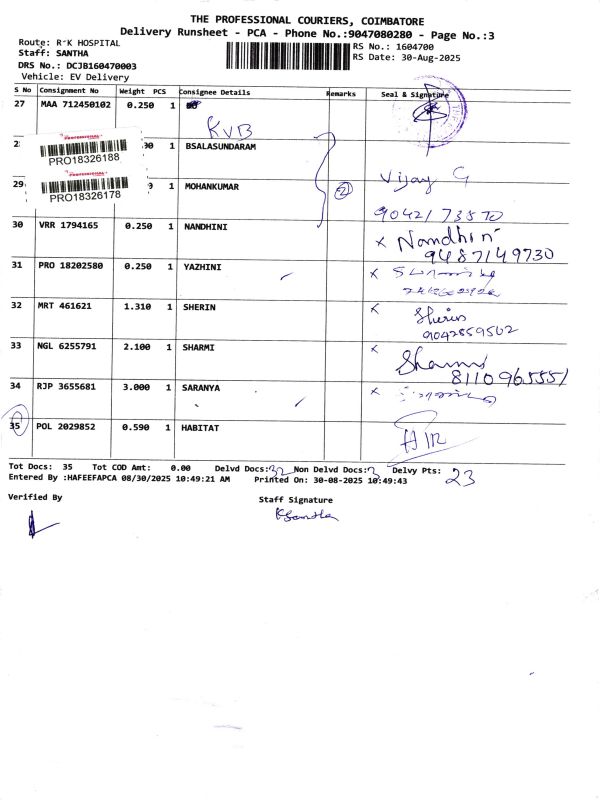 THE PROFESSIONAL COURIERS, COIMBATORE
Delivery Runsheet - PCA - Phone No.:9047080280 - Page No.:3
Route: R K HOSPITAL
Staff: SANTHA
DRS No.: DCJB160470003
Vehicle: EV Delivery
RS No.: 1604700
RS Date: 30-Aug-2025
S No Consignment No Weight PCS Consignee Details Remarks Seal & Signature
27 MAA 712450102 0.250 1
KVB
1 BSALASUNDARAM
PROFESSIONAL
PRO18326188
29 1 MOHANKUMAR 2 Vijay G
PROFESSIONAL
PRO18326178
30 VRR 1794165 0.250 1 NANDHINI x Nandhini
9487149730
31 PRO 18202580 0.250 1 YAZHINI x
32 MRT 461621 1.310 1 SHERIN x Sherin
9042859502
33 NGL 6255791 2.100 1 SHARMI x Sharmi
8110965551
34 RJP 3655681 3.000 1 SARANYA x
35 POL 2029852 0.590 1 HABITAT
Tot Docs: 35 Tot COD Amt: 0.00 Delvd Docs: 32 Non Delvd Docs: Delvy Pts: 23
Entered By :HAFEEFAPCA 08/30/2025 10:49:21 AM Printed On: 30-08-2025 10:49:43
Verified By Staff Signature
KSantha